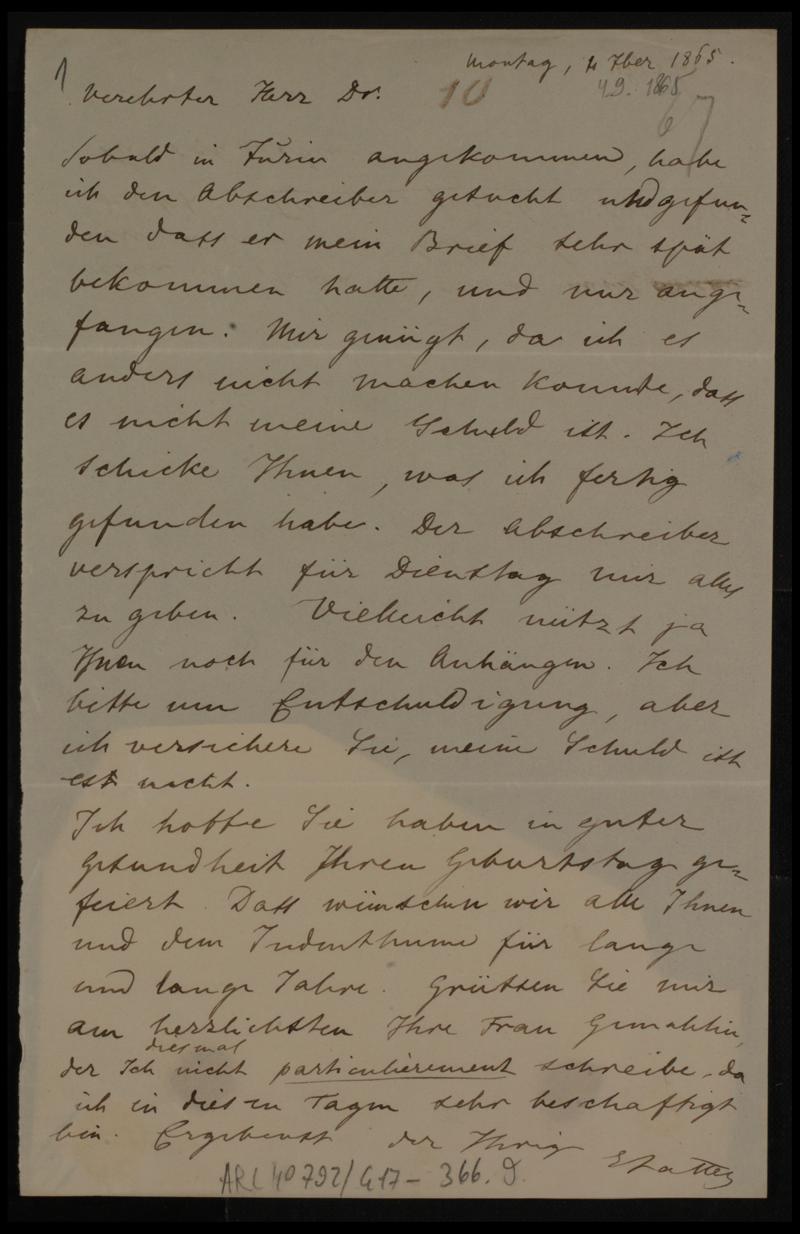 Montag, 4 7ber 1865.
4.9. 1865
1
Verehrter Herr Dr.
10
67
Sobald in Turin angekommen, habe
ich den Abschreiber gesucht und gefun=
den dass er mein Brief sehr spät
bekommen hatte, und nur ange=
fangen. Mir genügt, da ich es
anders nicht machen konnte, dass
es nicht meine Schuld ist. Ich
schicke Ihnen, was ich fertig
gefunden habe. Der Abschreiber
verspricht für Dienstag mir alles
zu geben. Vielleicht nützt ja
Ihnen noch für den Anhängen. Ich
bitte um Entschuldigung, aber
ich versichere Sie, meine Schuld ist
est nicht.
Ich hoffe Sie haben in guter
Gesundheit Ihren Geburtstag ge=
feiert. Dass wünschen wir alle Ihnen
und dem Judenthume für lange
und lange Jahre. Grüssen Sie mir
am herzlichsten Ihre Frau Gemahlin,
diesmal
der Ich nicht particulièrement schreibe, da
ich in diesen Tagen sehr beschaftigt
bin. Ergebenst der Ihrig
ARC 40792/G17- 366. D.